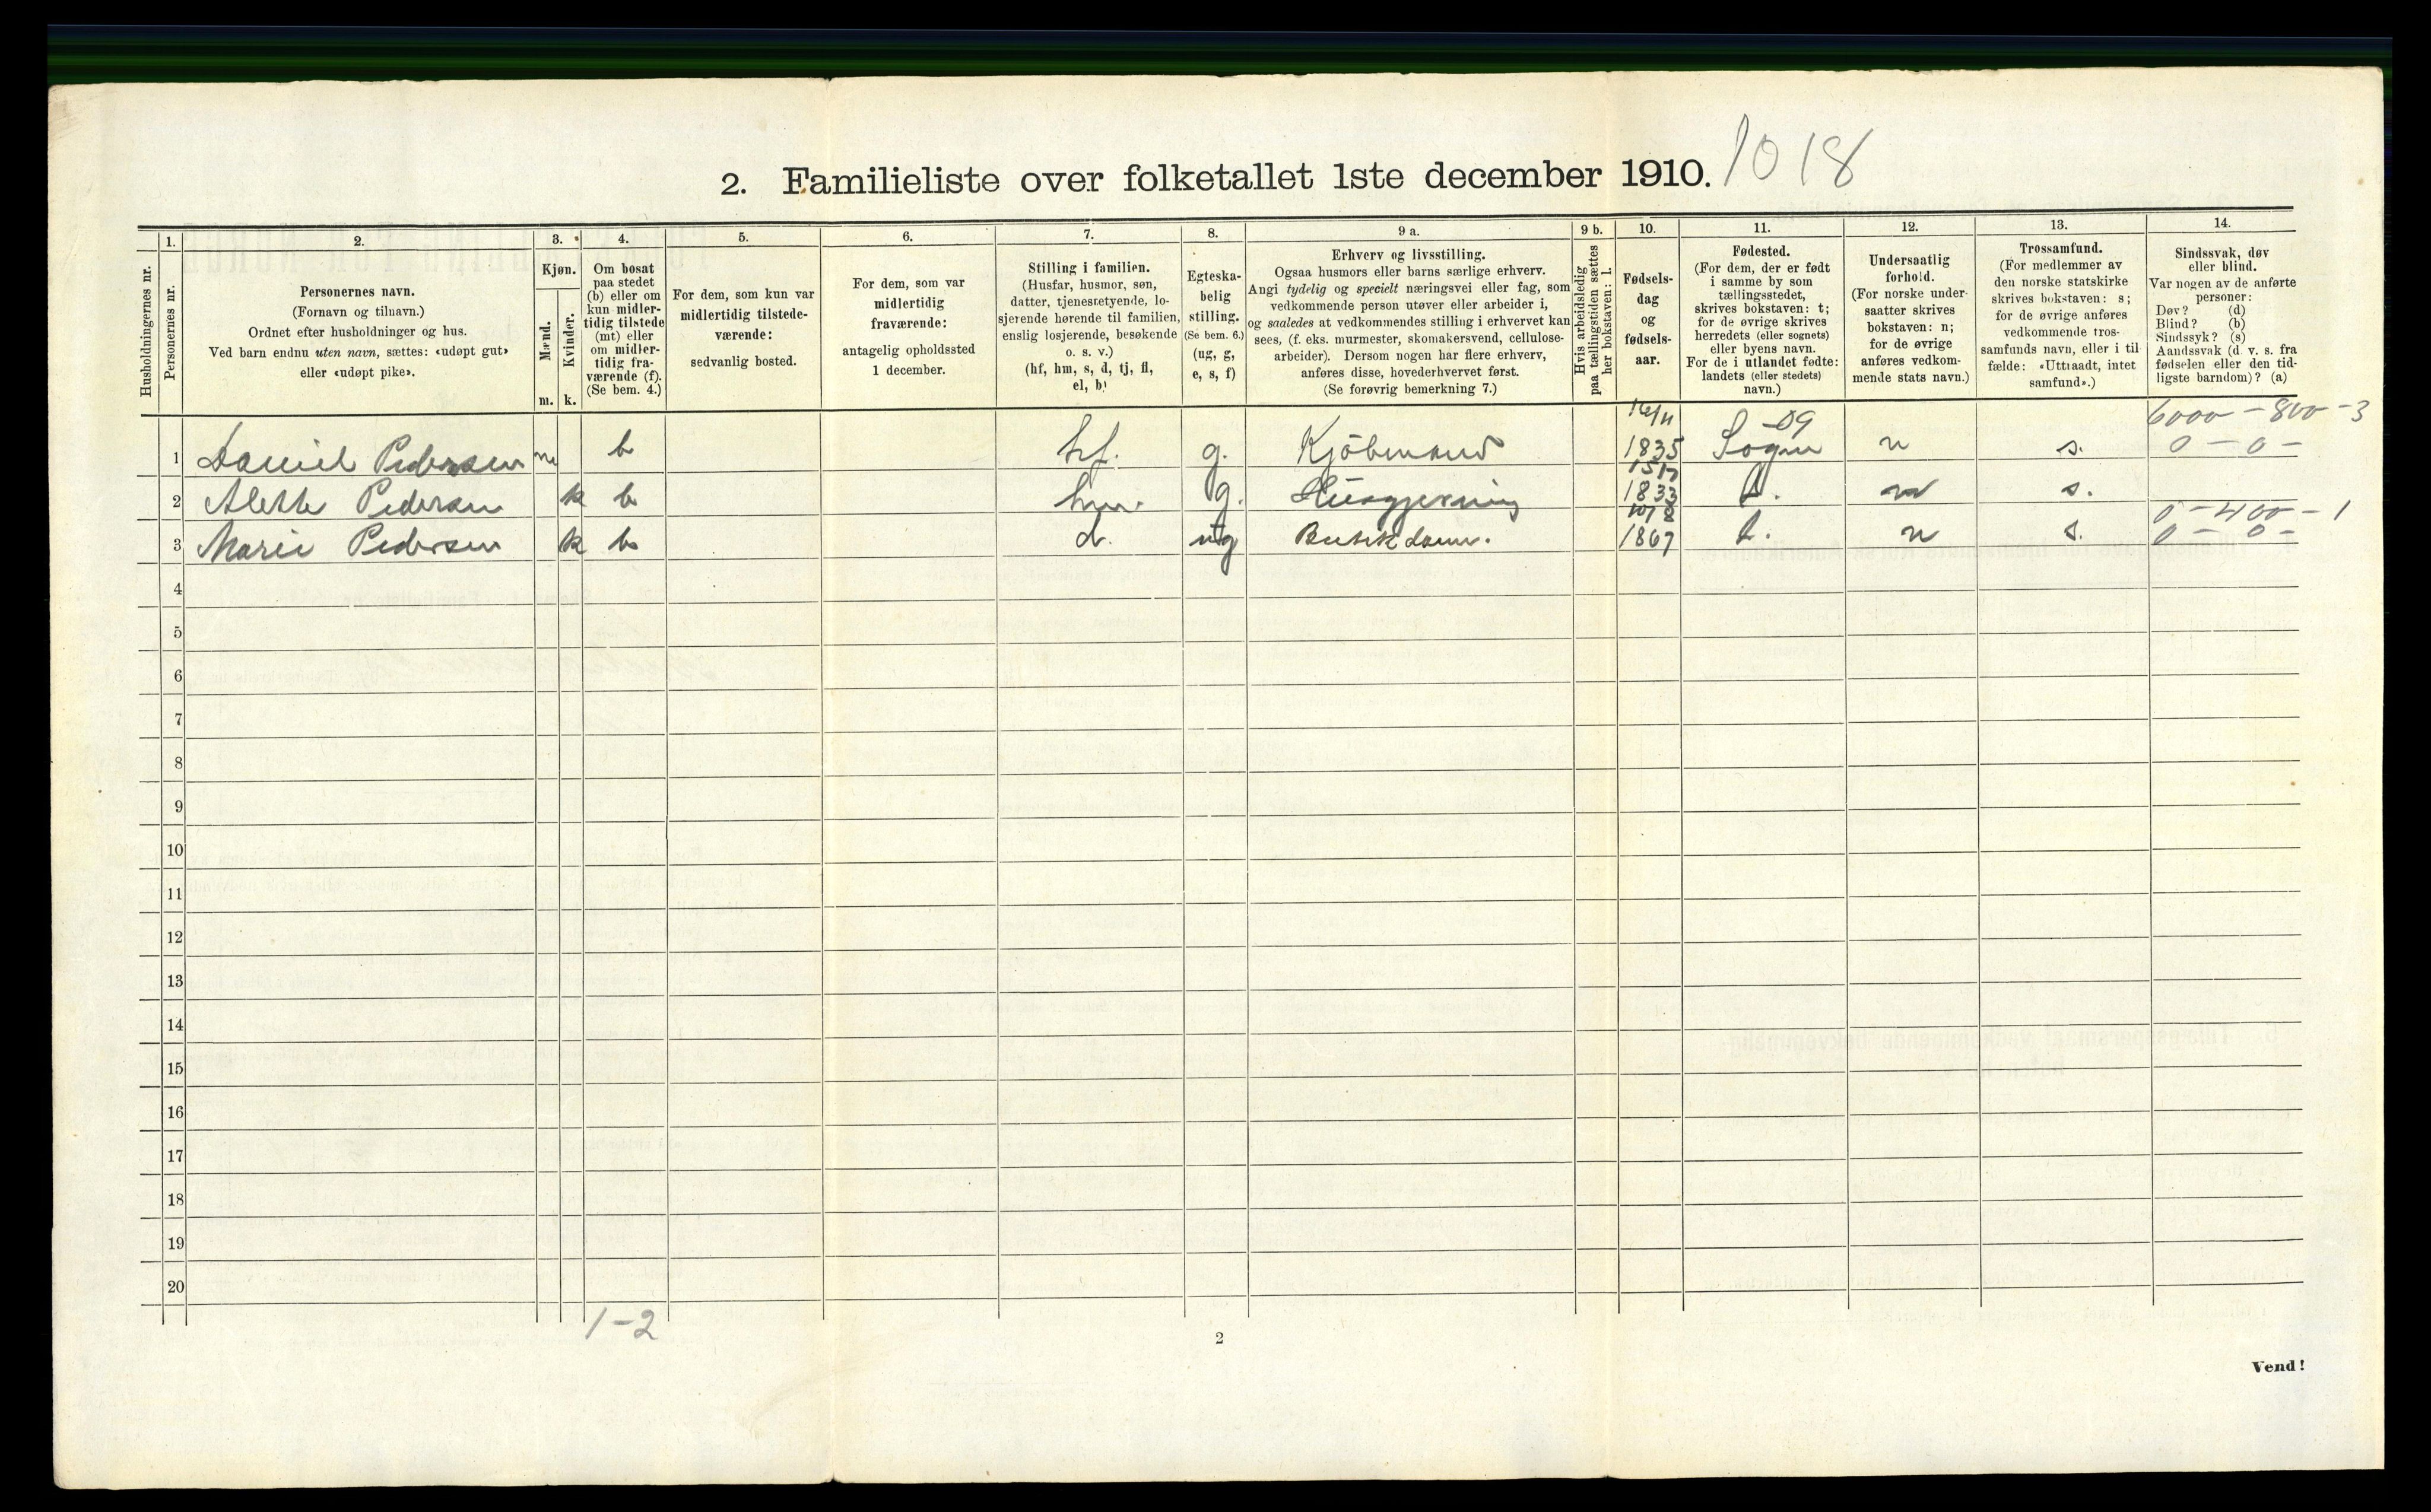 2. Familieliste over folketallet 1ste december 1910. 1018
Husholdningernes nr.
1.
Personernes nr.
2.
Personernes navn.
(Fornavn og tilnavn.)
Ordnet efter husholdninger og hus.
Ved barn endnu uten navn, sættes: «udøpt gut»
eller «udøpt pike».
3.
Kjøn.
Mænd.
Kvinder.
m. k.
4.
Om bosat
paa stedet
(b) eller om
kun midler-
tidig tilstede
(mt) eller
om midler-
tidig fra-
værende (f).
(Se bem. 4.)
5.
For dem, som kun var
midlertidig tilstede-
værende:
sedvanlig bosted.
6.
For dem, som var
midlertidig
fraværende:
antagelig opholdssted
1 december.
7.
Stilling i familien.
(Husfar, husmor, søn,
datter, tjenestetyende, lo-
sjerende hørende til familien,
enslig losjerende, besøkende
o. s. v.)
(hf, hm, s, d, tj, fl,
el, b)
8.
Egteska-
belig
stilling.
(Se bem. 6.)
(ug, g,
e, s, f)
9 a.
Erhverv og livsstilling.
Ogsaa husmors eller barns særlige erhverv.
Angi tydelig og specielt næringsvei eller fag, som
vedkommende person utøver eller arbeider i,
og saaledes at vedkommendes stilling i erhvervet kan
sees, (f. eks. murmester, skomakersvend, cellulose-
arbeider). Dersom nogen har flere erhverv,
anføres disse, hovederhvervet først.
(Se forøvrig bemerkning 7.)
9 b.
Hvis arbeidsledig
paa tællingstiden sættes
her bokstaven: l.
10.
Fødsels-
dag
og
fødsels-
aar.
11.
Fødested.
(For dem, der er født
i samme by som
tællingsstedet,
skrives bokstaven: t;
for de øvrige skrives
herredets (eller sognets)
eller byens navn.
For de i utlandet fødte:
landets (eller stedets)
navn.)
12.
Undersaatlig
forhold.
(For norske under-
saatter skrives
bokstaven: n;
for de øvrige
anføres vedkom-
mende stats navn.)
13.
Trossamfund.
(For medlemmer av
den norske statskirke
skrives bokstaven: s;
for de øvrige anføres
vedkommende tros-
samfunds navn, eller i til-
fælde: «Uttraadt, intet
samfund».)
14.
Sindssvak, døv
eller blind.
Var nogen av de anførte
personer:
Døv? (d)
Blind? (b)
Sindssyk? (s)
Aandssvak (d. v. s. fra
fødselen eller den tid-
ligste barndom)? (a)
-09 6000 - 800 - 3
1 Daniel Pedersen m b hf. g. Kjöbmand 1835 Sogn n s. 0 - 0 -
2 Alette Pedersen k b hm. g. Husgjerning 1833 s.
0 - 400 - 1
3 Marie Pedersen k b d. ug Butikdame. 1867 n s. 0 - 0 -
4
5
6
7
8
9
10
11
12
13
14
15
16
17
18
19
20
1-2
2
Vend!